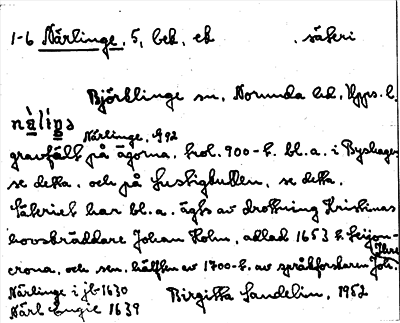 1-6 Närlinge, 5, bek, ek säteri
Björklinge sn, Norunda hd, Upps. l.
nä̀líŋə
Närlinge, 992
gravfält på ägorna, trol. 900-t. bl.a. i Byshagen
se detta, och på Lustigkullen, se detta.
Säteriet har bl.a. ägts av drottning Kristinas
hovskräddare Johan Holm, adlad 1653 t. Leijon-
crona, och sen. hälften av 1700-t. av språkforskaren Joh. Ihre
Närlinge i jb 1630
Närlingie 1639
Birgitta Sandelin, 1952